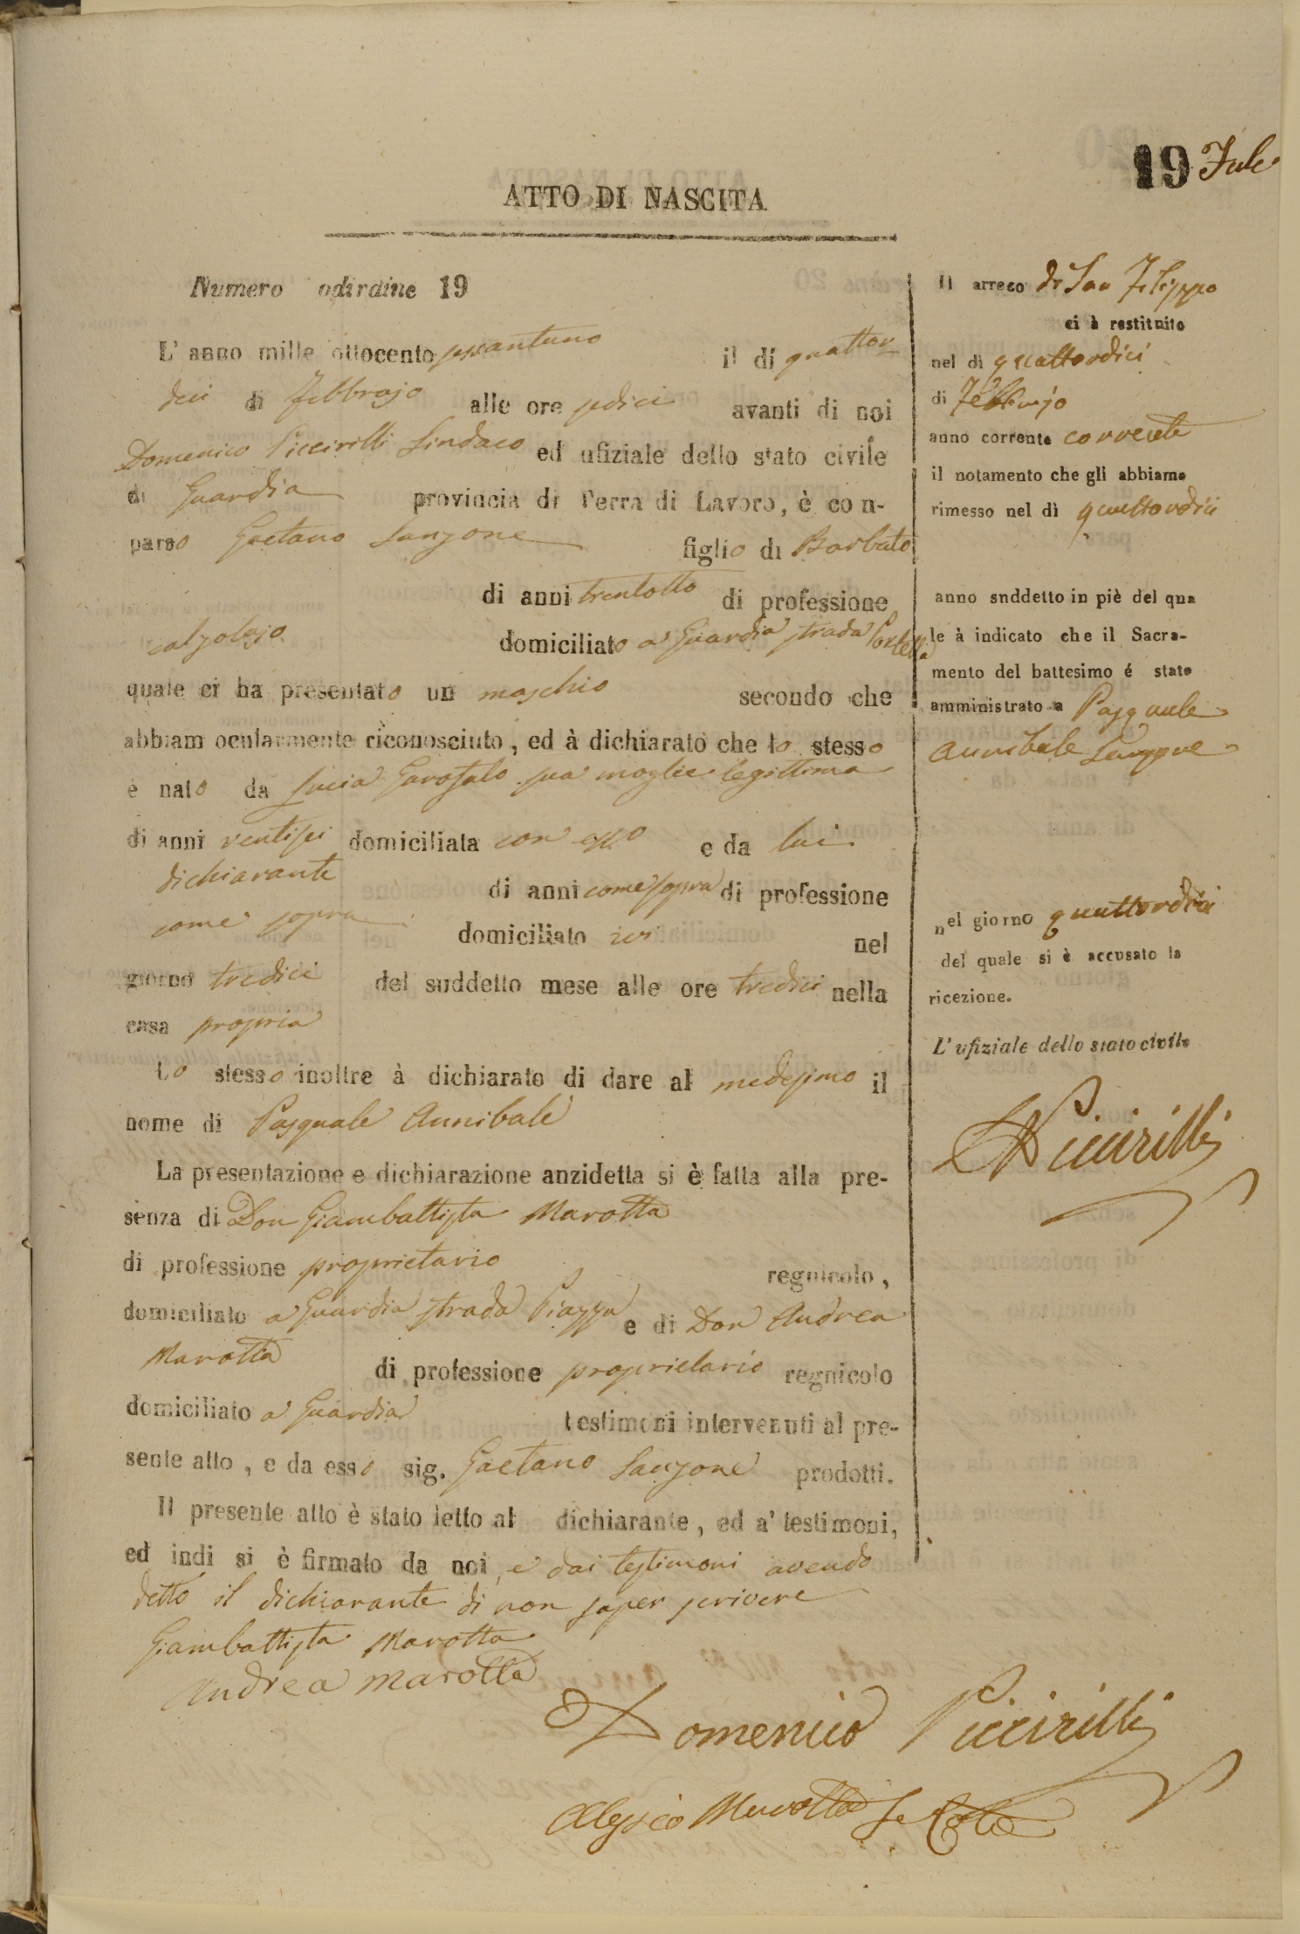 19
ATTO DI NASCITA
Numero odirdine 19
L' anno mille ottocento sessantuno il dì quattor
dici di Febbrajo alle ore sedici avanti di noi
Domenico Piccirilli Sindaco ed ufiziale dello stato civile
di Guardia provincia di Terra di Lavoro, è con-
parso Gaetano Sanzone figlio di Barbato
di anni trentotto di professione
calzolajo domiciliato a Guardia strada Portella
quale ci ha presentato un maschio secondo che
abbiam ocularmente riconosciuto, ed à dichiarato che lo stesso
è nato da Lucia Garofalo sua moglie legittima
di anni ventisei domiciliata con esso e da lui
dichiarante di anni come sopra di professione
come sopra domiciliato ivi nel
giorno tredici del suddetto mese alle ore tredici nella
casa propria
Lo stesso inoltre à dichiarato di dare al medesimo il
nome di Pasquale Annibale
La presentazione e dichiarazione anzidetta si è fatta alla pre-
senza di Don Giambattista Marotta
di professione proprietario regnicolo,
domiciliato a Guardia strada Piazza e di Don Andrea
Marotta di professione proprietario regnicolo
domiciliato a Guardia testimoni intervenuti al pre-
sente atto, e da esso sig. Gaetano Sanzone prodotti.
Il presente atto è stato letto al dichiarante, ed a' testimoni,
ed indi si è firmato da noi, e dai testimoni avendo
detto il dichiarante di non saper scrivere
Giambattista Marotta
Andrea Marotta
Domenico Piccirilli
Alessio Marotta
Il arreco di San Filippo
ci à restituito
nel dì quattordici
di Febbrajo
anno corrente corrente
il notamento che gli abbiamo
rimesso nel dì quattordici
anno snddetto in piè del qua
le à indicato che il Sacra-
mento del battesimo é stato
amministrato a Pasquale
Annibale Sanzone
nel giorno quattordici
del quale si è accusato la
ricezione.
L' ufiziale dello stato civile
D Piccirilli